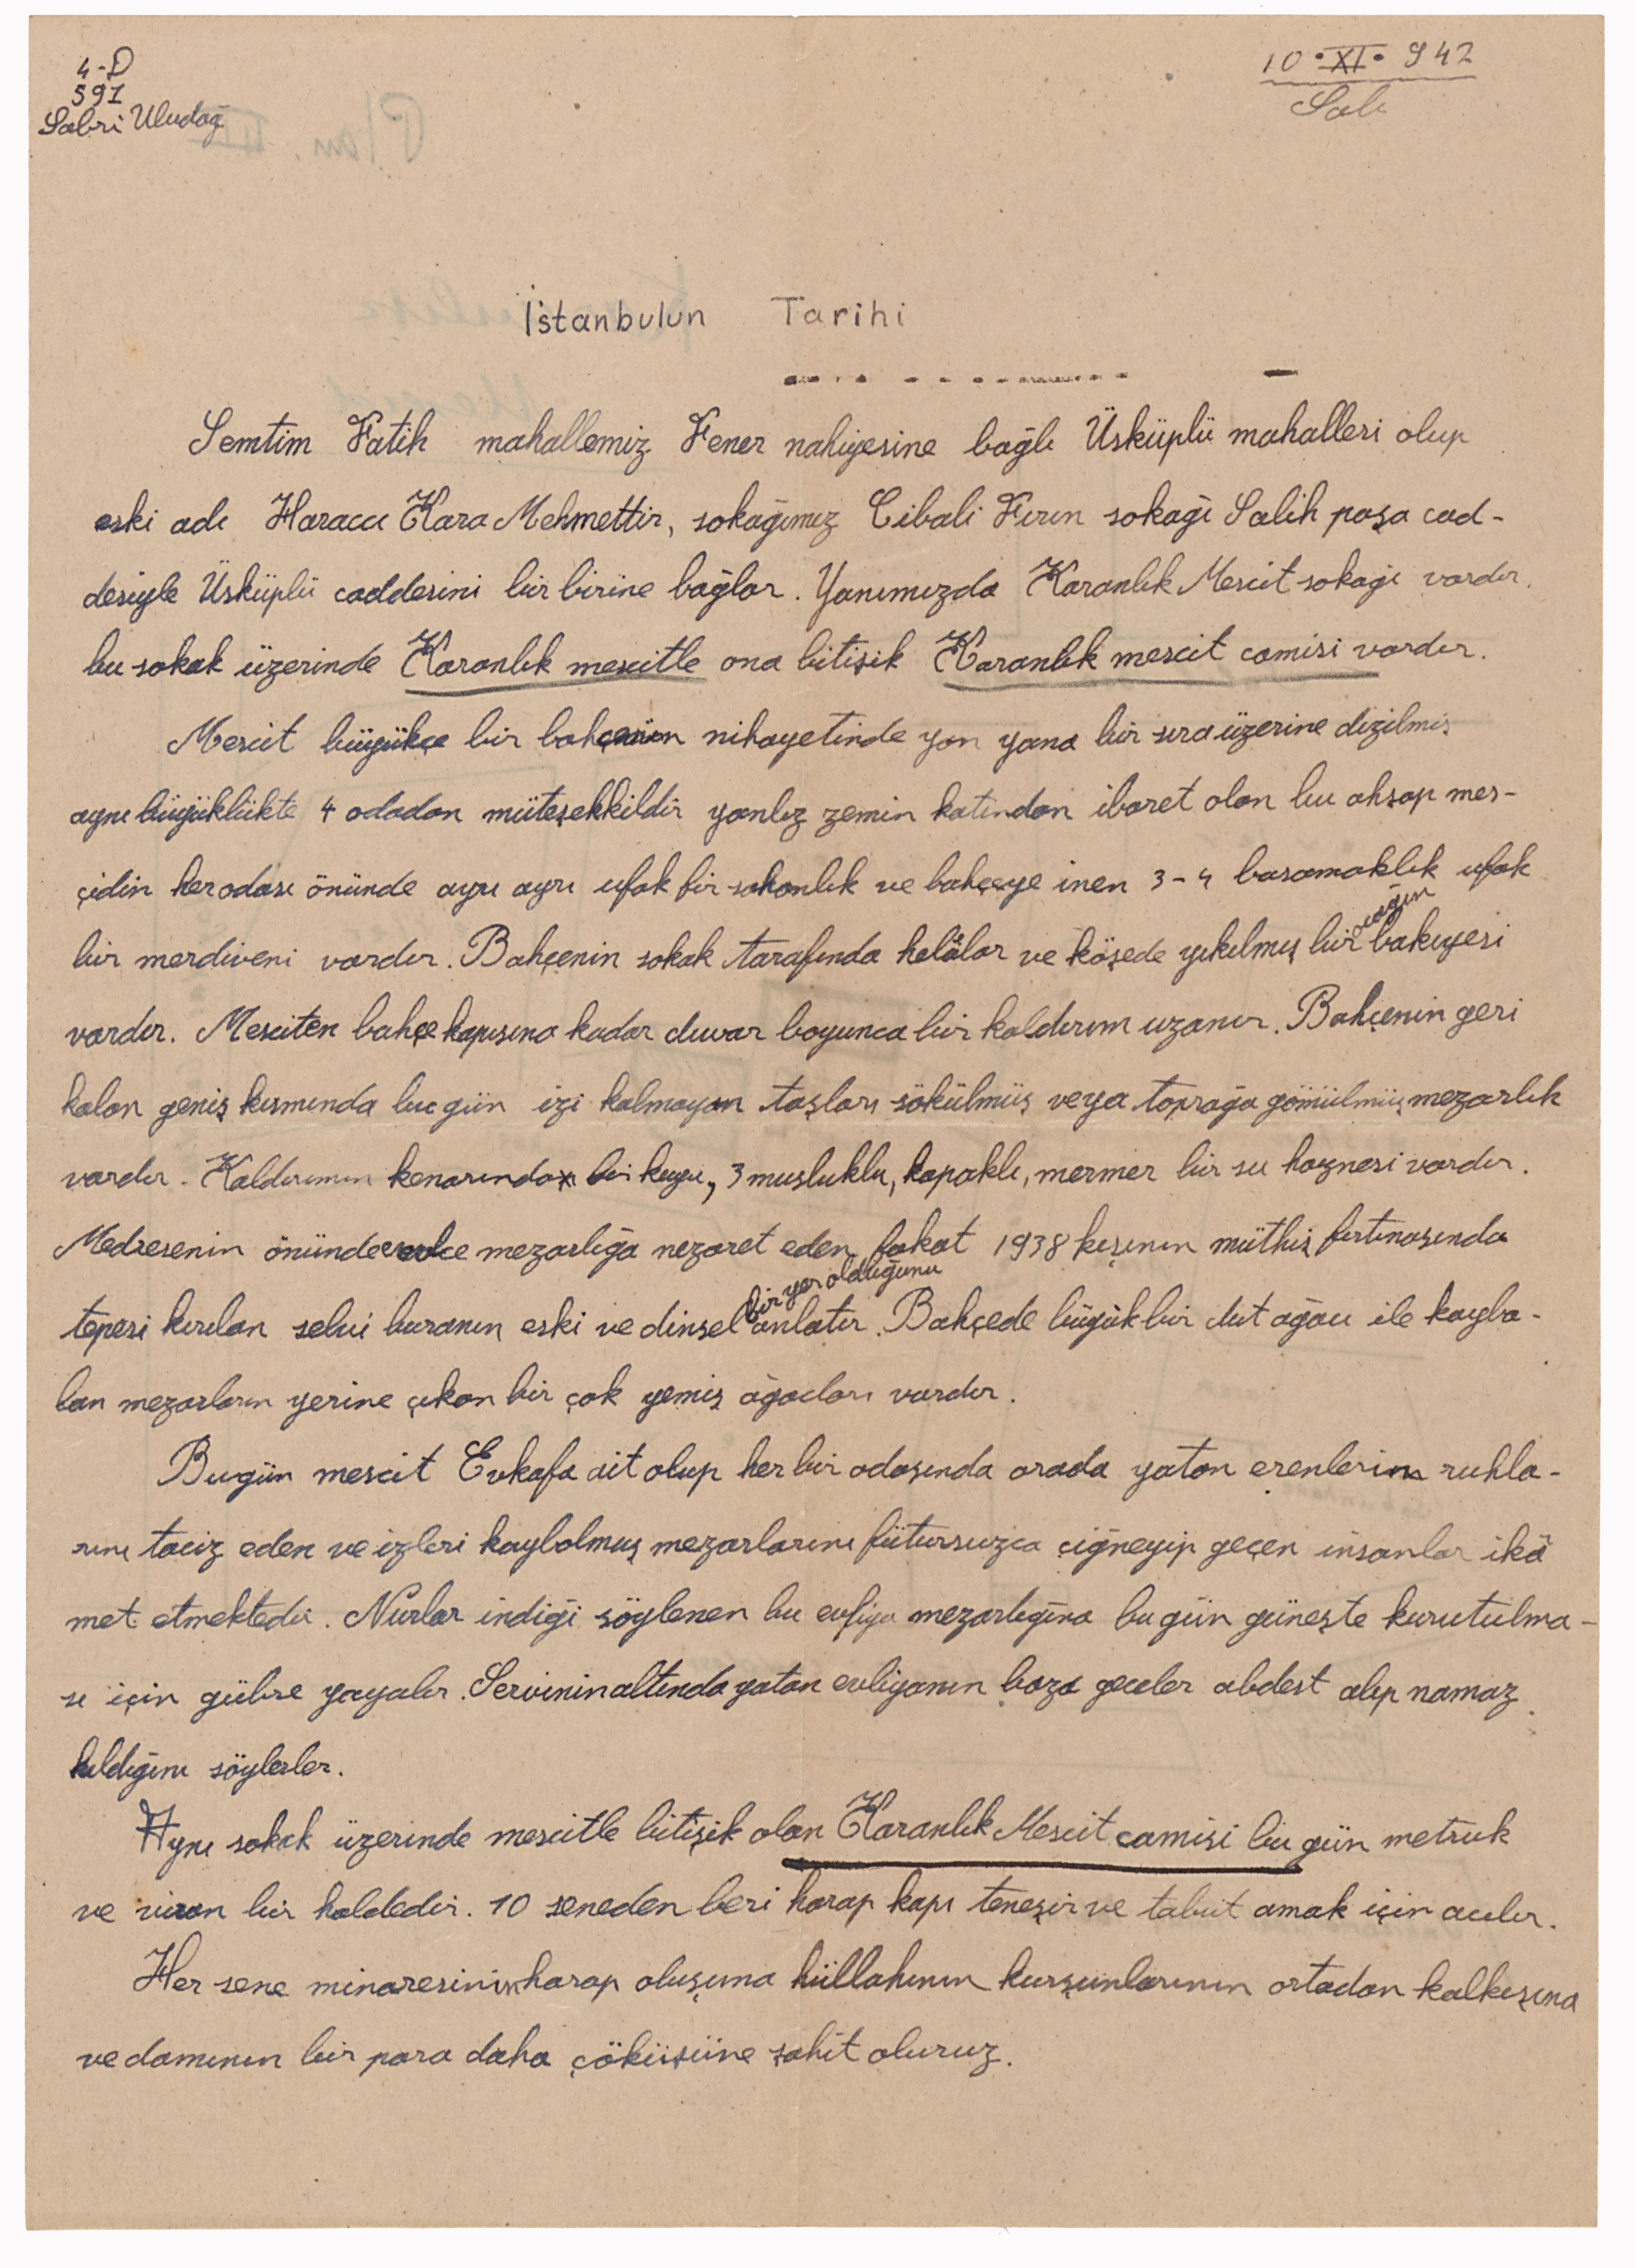 4-D
591
Sabri Uludağ
10·XI·942
Salı
İstanbulun Tarihi
Semtim Fatih mahallemiz Fener nahiyesine bağlı Üsküplü mahallesi olup
eski adı Haraccı Kara Mehmettir, sokağımız Cibali Fırın sokağı Salih paşa cad-
desiyle Üsküplü caddesini bir birine bağlar. Yanımızda Karanlık Mescit sokağı vardır.
bu sokak üzerinde Karanlık mescitle ona bitişik Karanlık mescit camisi vardır.
Mescit büyükçe bir bahçenin nihayetinde yan yana bir sıra üzerine dizilmiş
aynı büyüklükte 4 odadan müteşekkildir yanlız zemin katından ibaret olan bu ahşap mes-
çidin her odası önünde ayrı ayrı ufak bir sahanlık ve bahçeye inen 3-4 basamaklık ufak
bir merdiveni vardır. Bahçenin sokak tarafında helâlar ve köşede yıkılmış bir bakiyesi
vardır. Mesciten bahçe kapısına kadar duvar boyunca bir kaldırım uzanır. Bahçenin geri
kalan geniş kısmında bu gün izi kalmayan taşları sökülmüş veya toprağa gömülmüş mezarlık
vardır. Kaldırımın kenarında bir kuyu, 3 musluklu, kapaklı, mermer bir su haznesi vardır.
Medresenin önünde mezarlığa nezaret eden fakat 1938 kışının müthiş fırtınasında
tepesi kırılan selvi buranın eski ve dinsel bir yer olduğunu anlatır. Bahçede büyük bir dut ağacı ile kaybo-
lan mezarların yerine çıkan bir çok yemiş ağaçları vardır.
Bugün mescit Evkafa ait olup her bir odasında orada yatan erenlerin ruhla-
rını taciz eden ve izleri kaybolmuş mezarlarını fütursuzca çiğneyip geçen insanlar ikâ
met etmektedir. Nurlar indiği söylenen bu evliya mezarlığına bu gün güneşte kurutulma-
sı için gübre yayalır. Servinin altında yatan evliyanın bazı geceler abdest alıp namaz
kıldığını söylerler.
Aynı sokak üzerinde mescitle bitişik olan Karanlık Mescit camisi bu gün metruk
ve viran bir haldedir. 10 seneden beri harap kapı teneşir ve tabut amak için acılır.
Her sene minaresinin harap oluşuna küllahının kurşunlarının ortadan kalkışına
ve damının bir para daha çöküşüne şahit oluruz.